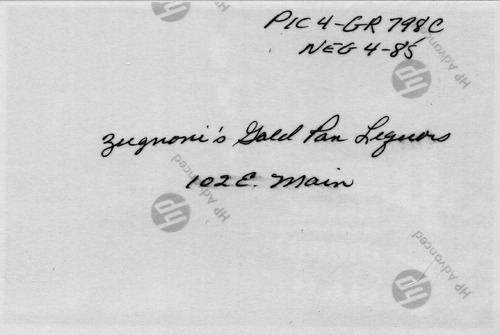 PIC 4-GR 798C
NEG 4-85
Zugnoni's Gold Pan Liquors
102 E. Main
hp
HP Advanced
hp
HP Advanced
hp
HP Advanced
hp
HP Advanced